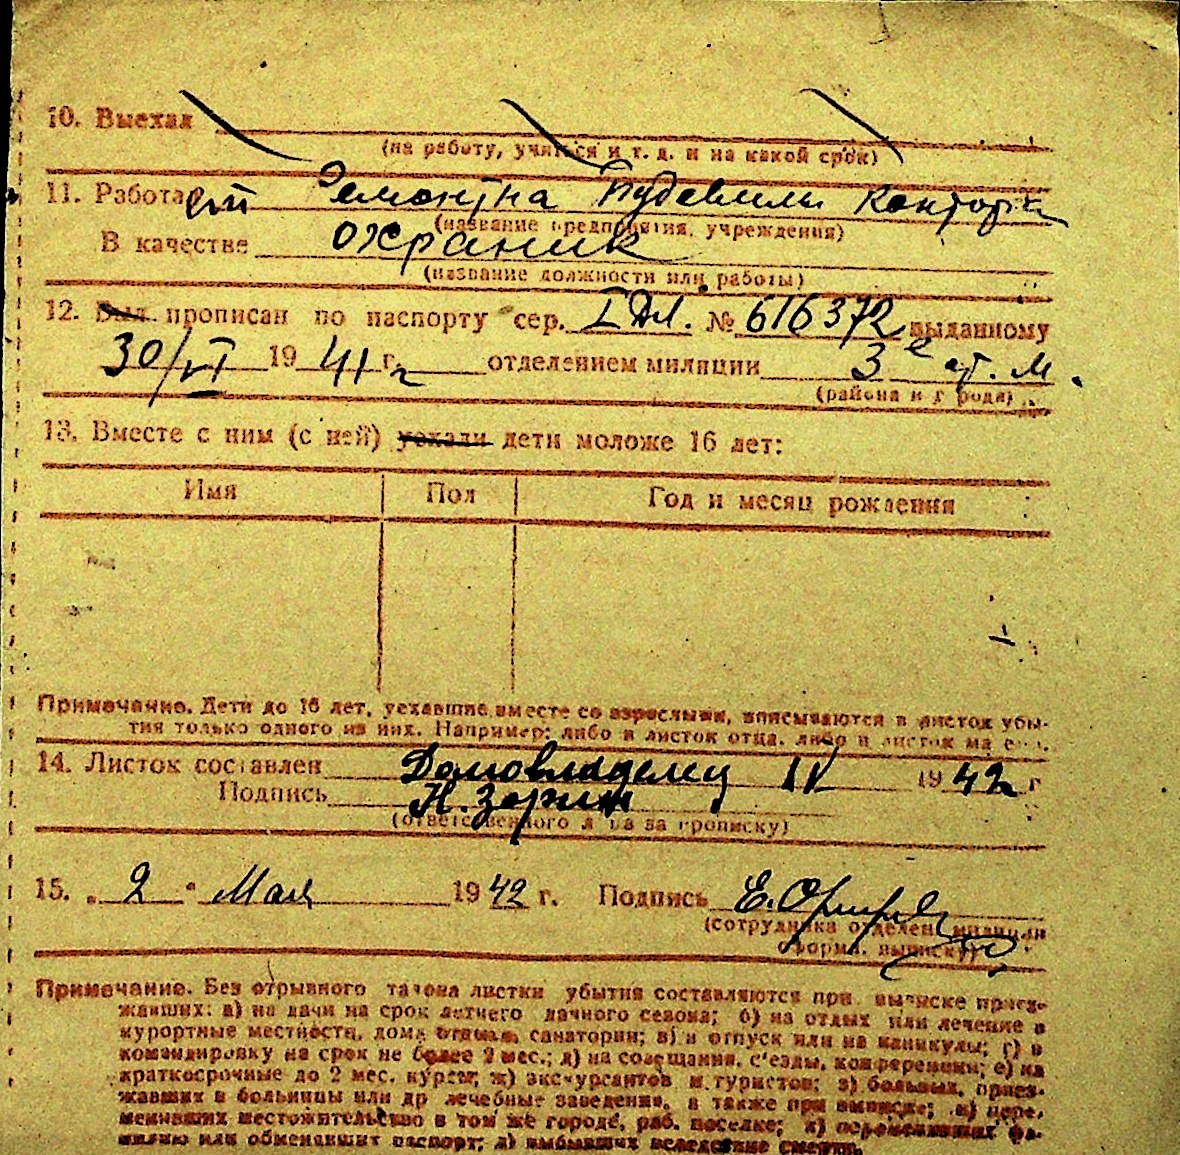 10. Выехал
(на работу, учиться и т. д. и на какой срок)
11. Работает Ремонтна Будевили контора
(название предприятия, учреждения)
В качестве охраник
(название должности или работы)
12. Был прописан по паспорту сер. I ДЛ. № 616372 выданному
30/VI 19 41 г. отделением милиции 3е от. М.
(района и города)
13. Вместе с ним (с ней) уехали дети моложе 16 лет:
Имя Пол Год и месяц рождения
Примечание. Дети до 16 лет, уехавшие вместе со взрослыми, вписываются в листок убы-
тия только одного из них. Например: либо в листок отца, либо в листок матери.
14. Листок составлен Домовладелец IV 19 42 г
Подпись Н. Зорин
(ответственного лица за прописку)
15. „ 2 " Мая 19 42 г. Подпись Е.
(сотрудника отделен. милиции
оформ. выписку)
Примечание. Без отрывного талона листки убытия составляются при выписке приез-
жавших: а) на дачи на срок летнего дачного сезона; б) на отдых или лечение в
курортные местности, дома отдыха, санатории; в) в отпуск или на каникулы; г) в
командировку на срок не более 2 мес.; д) на совещания, с'езды, конференции; е) на
краткосрочные до 2 мес. курсы; ж) экскурсантов и туристов; з) больных, приез-
жавших в больницы или др лечебные заведения, а также при выписке; и) пере-
менивших местожительство в том же городе, раб. поселке; к) переменивших фа-
милию или обменявших паспорт; л) выбывших вследствие смерти.